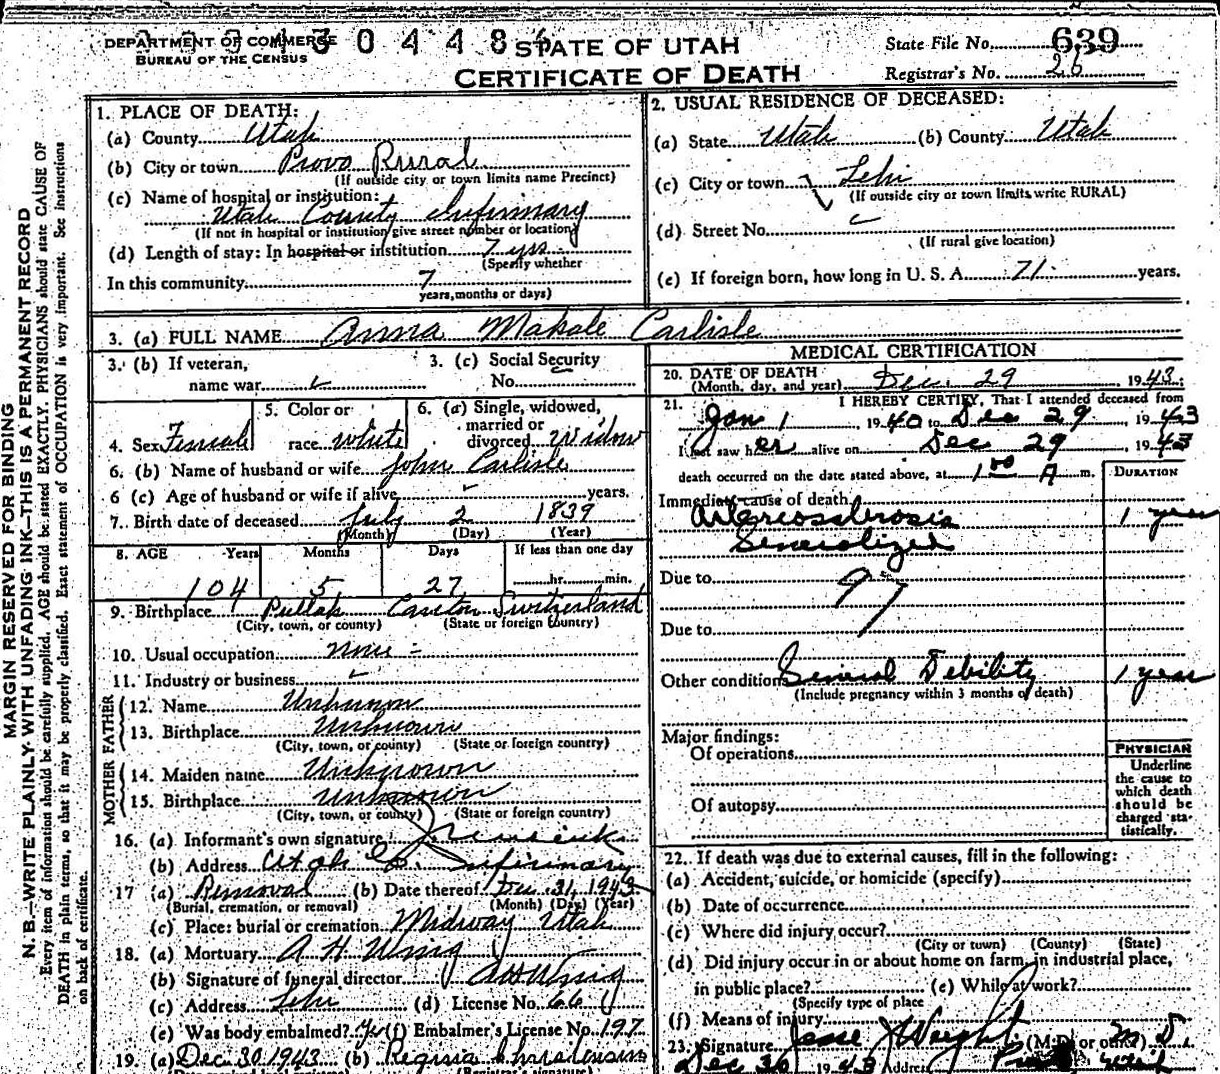 DEPARTMENT OF COMMERCE
BUREAU OF THE CENSUS
STATE OF UTAH
CERTIFICATE OF DEATH
State File No. 639
Registrar's No. 26
MARGIN RESERVED FOR BINDING
N. B.—WRITE PLAINLY WITH UNFADING INK—THIS IS A PERMANENT RECORD
Every item of information should be carefully supplied. AGE should be stated EXACTLY. PHYSICIANS should state CAUSE OF
DEATH in plain terms, so that it may be properly classified. Exact statement of OCCUPATION is very important. See Instructions
on back of certificate.
1. PLACE OF DEATH:
(a) County Utah
(b) City or town Provo Rural
(If outside city or town limits name Precinct)
(c) Name of hospital or institution:
Utah County Infirmary
(If not in hospital or institution give street number or location)
(d) Length of stay: In hospital or institution 7 yrs
(Specify whether
In this community 7
years, months or days)
2. USUAL RESIDENCE OF DECEASED:
(a) State Utah (b) County Utah
(c) City or town Lehi
(If outside city or town limits write RURAL)
(d) Street No.
(If rural give location)
(e) If foreign born, how long in U. S. A. 71 years.
3. (a) FULL NAME Anna Makale Carlisle
3. (b) If veteran,
name war
3. (c) Social Security
No.
4. Sex Female
5. Color or
race white
6. (a) Single, widowed,
married or
divorced Widow
6. (b) Name of husband or wife John Carlisle
6 (c) Age of husband or wife if alive years.
7. Birth date of deceased July 2 1839
(Month) (Day) (Year)
8. AGE Years Months Days If less than one day
104 5 27 hr. min.
9. Birthplace Canton Switzerland
(City, town, or county) (State or foreign country)
10. Usual occupation none
11. Industry or business
FATHER
12. Name Unknown
13. Birthplace Unknown
(City, town, or county) (State or foreign country)
MOTHER
14. Maiden name Unknown
15. Birthplace Unknown
(City, town, or county) (State or foreign country)
16. (a) Informant's own signature
(b) Address Utah Co. Infirmary
17 (a) Removal (b) Date thereof Dec. 31, 1943
(Burial, cremation, or removal) (Month) (Day) (Year)
(c) Place: burial or cremation Midway Utah
18. (a) Mortuary A H Wing
(b) Signature of funeral director AH Wing
(c) Address Lehi (d) License No. 66
(e) Was body embalmed? (f) Embalmer's License No. 197
19. (a) Dec 30 1943 (b) Regina
MEDICAL CERTIFICATION
20. DATE OF DEATH
(Month, day, and year) Dec. 29, 1943
21. I HEREBY CERTIFY, That I attended deceased from
Jan 1 1940 to Dec 29 1943
I last saw her alive on Dec 29 1943
death occurred on the date stated above, at 1 00 A m.
DURATION
Immediate cause of death
Arteriosclerosis 1 year
Generalized
Due to 97
Due to
Other conditions General Debility 1 year
(Include pregnancy within 3 months of death)
Major findings:
Of operations
Of autopsy
PHYSICIAN
Underline
the cause to
which death
should be
charged sta-
tistically.
22. If death was due to external causes, fill in the following:
(a) Accident, suicide, or homicide (specify)
(b) Date of occurrence
(c) Where did injury occur?
(City or town) (County) (State)
(d) Did injury occur in or about home on farm, in industrial place,
in public place? (e) While at work?
(Specify type of place
(f) Means of injury
23. Signature Jesse Weight M D. (M.D. or other)
Dec 30 1943 Address Provo Utah